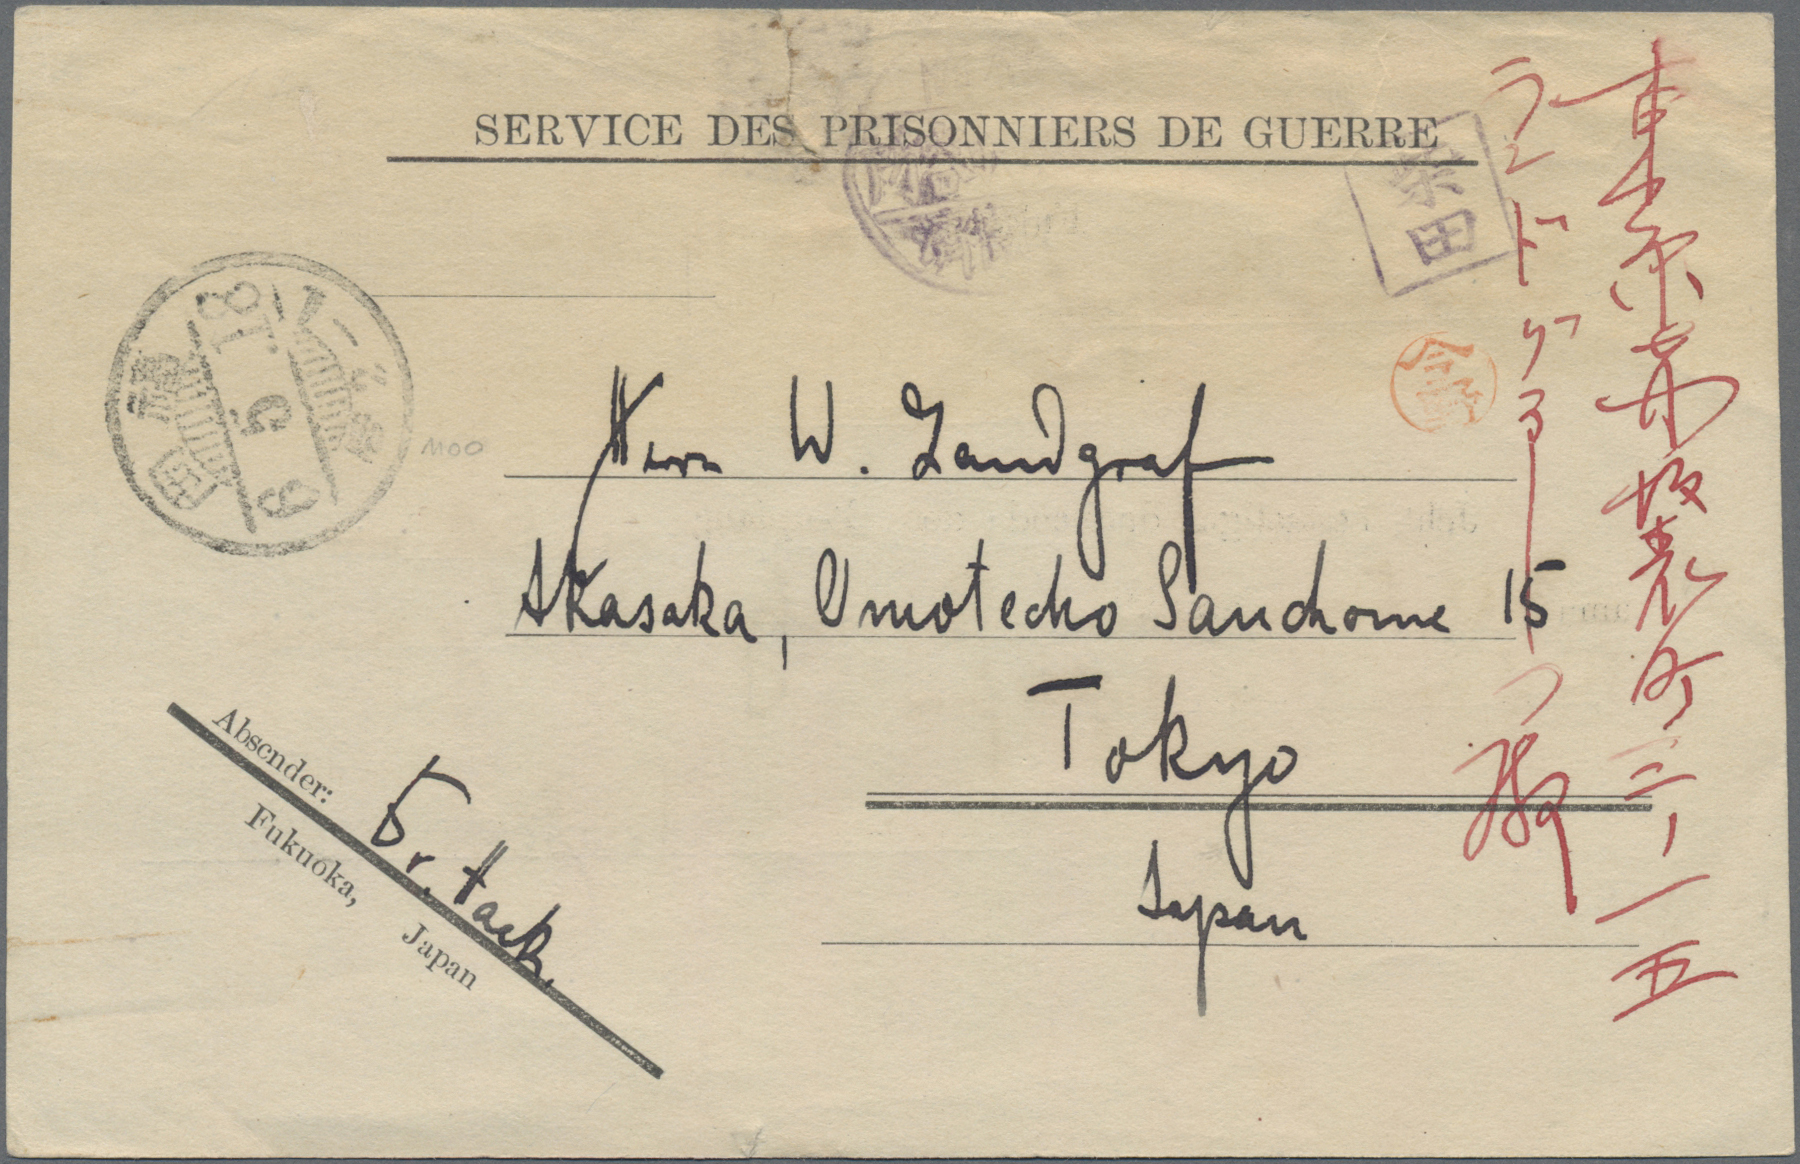 SERVICE DES PRISONNIERS DE GUERRE
柴田
Herrn W. Landgraf
Akasaka, Omotecho Sanchome 15
Tokyo
Japan
Absender: Dr. Hack.
Fukuoka, Japan
東京市赤坂表町三ノ一五
ランドグラフ殿
福岡
5.1.18
1100